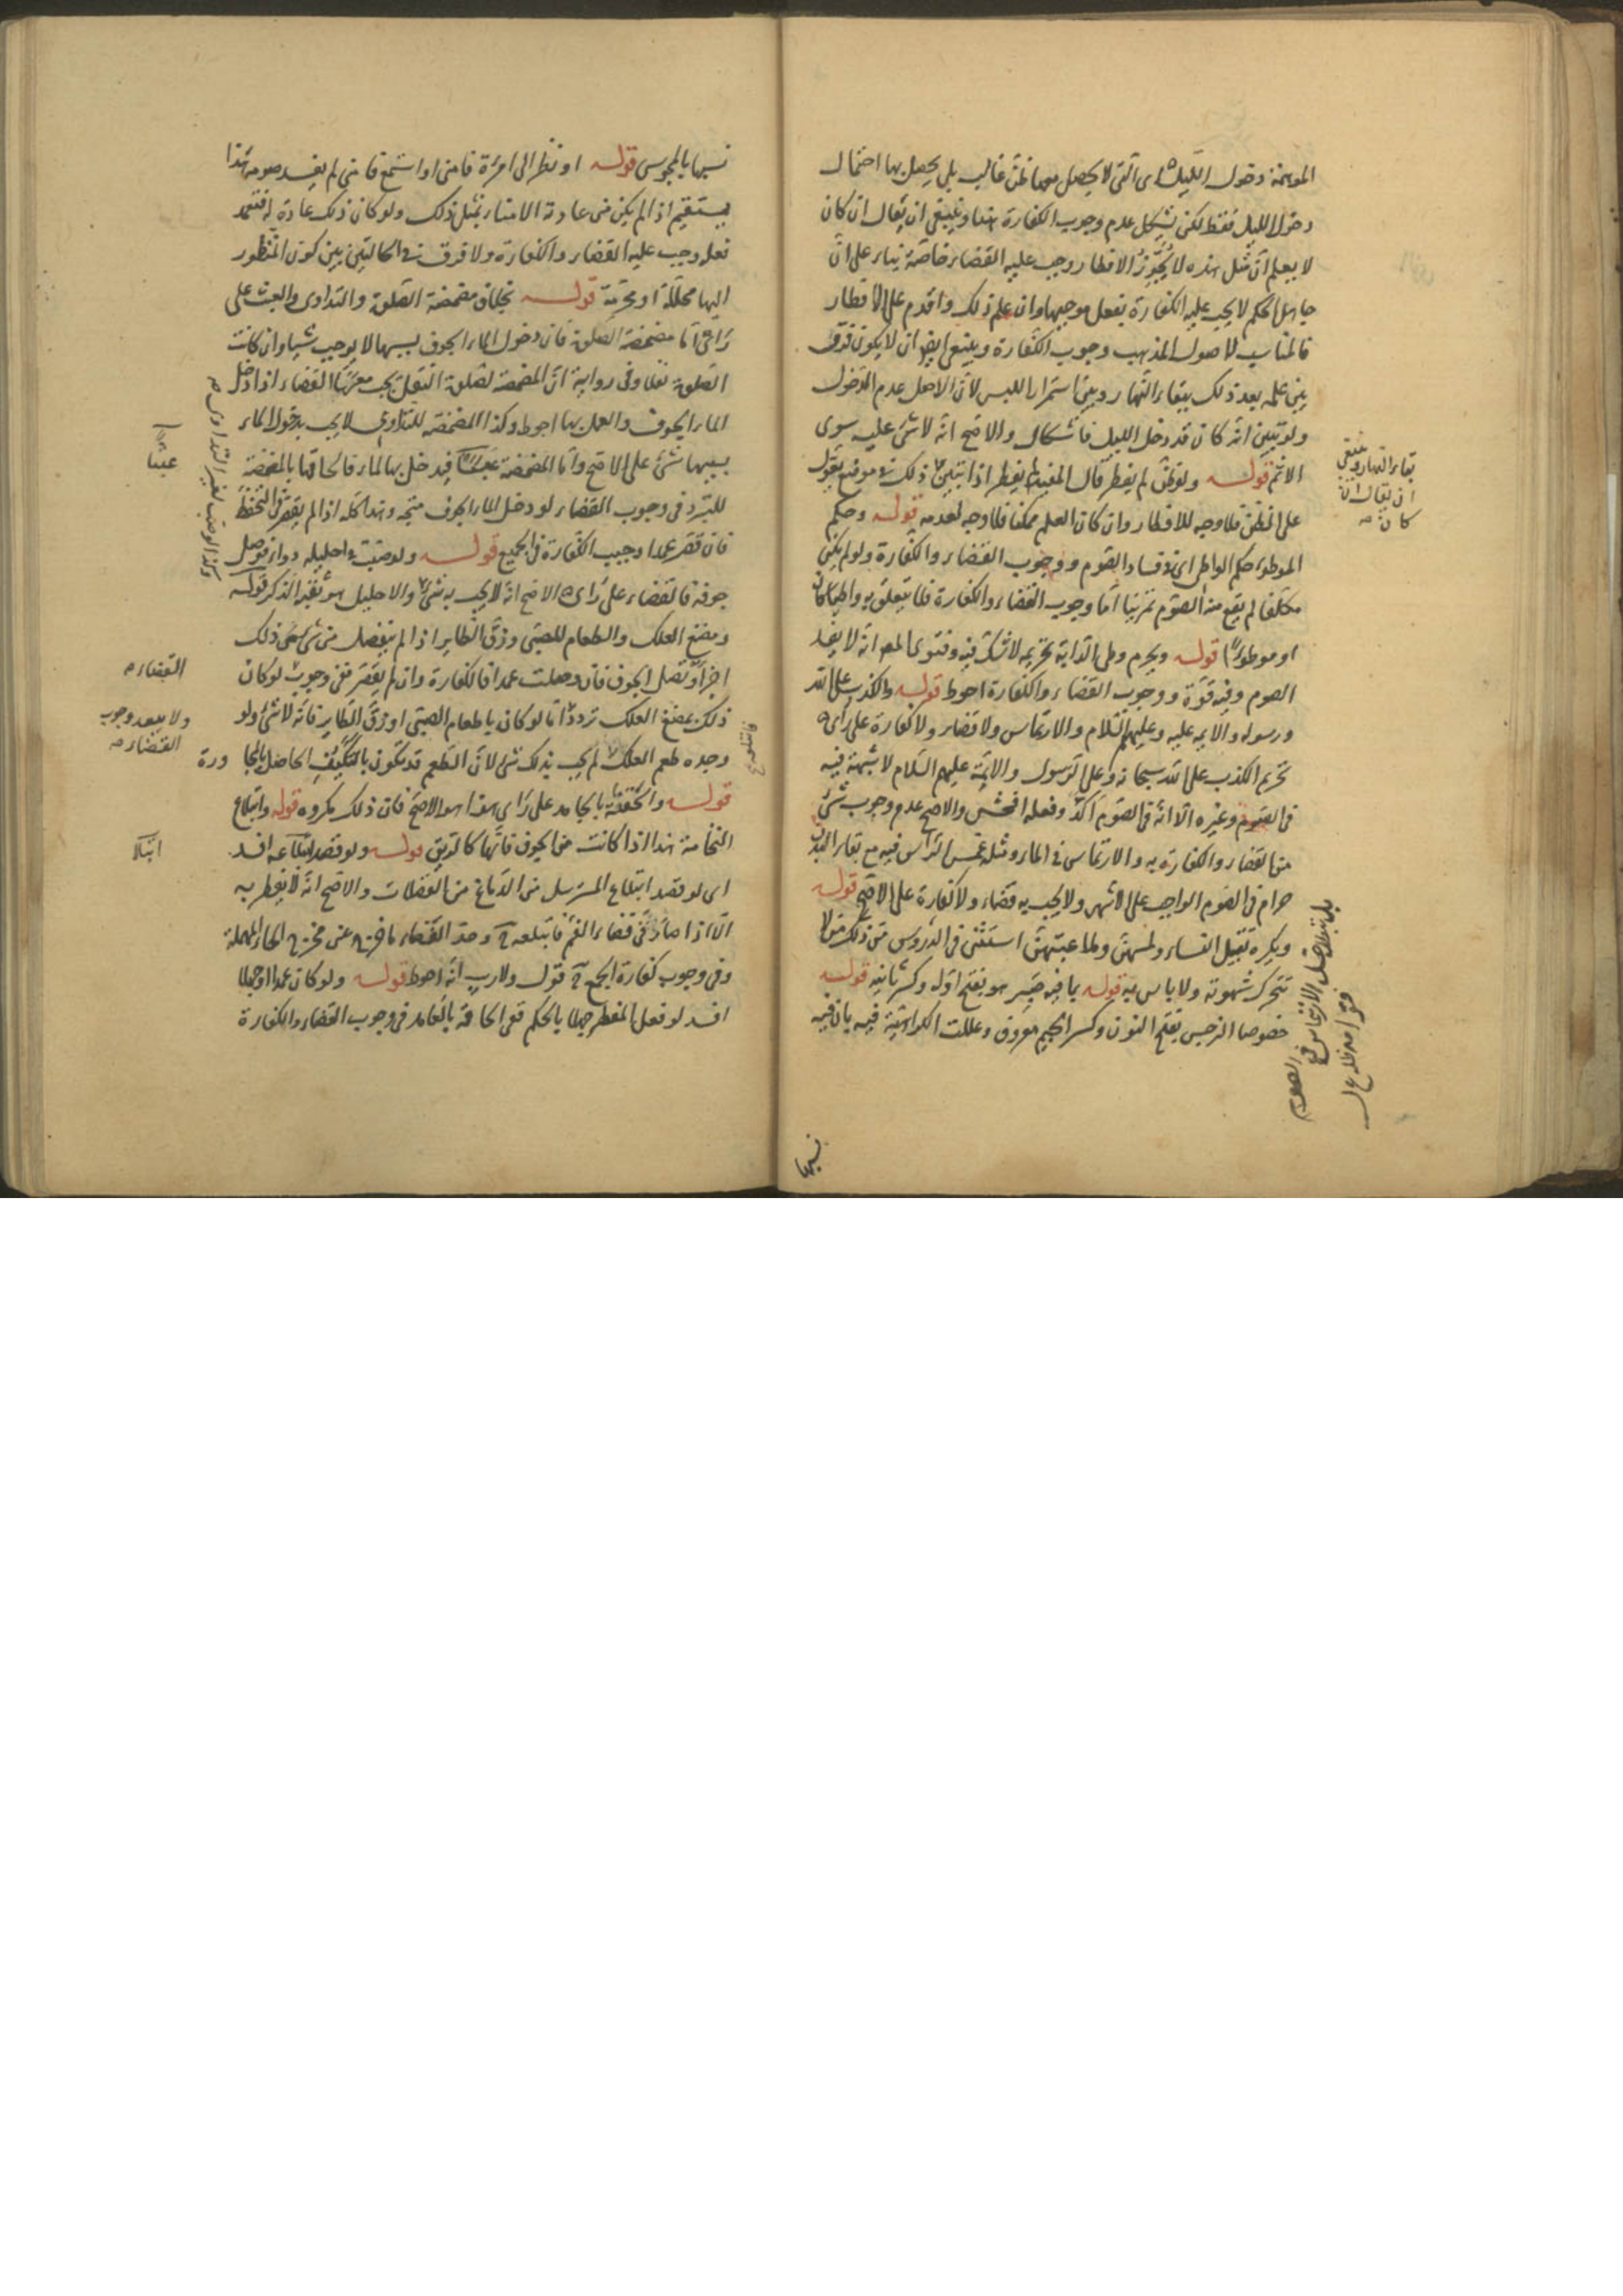 الموهمة دخول الليل اى التى لا يحصل معها ظن غالب بل يحصل بها احتمال
دخول الليل فقط لكن يشكل عدم وجوب الكفارة هنا وينبغى ان يقال ان كان
لا يعلم ان مثل هذه لا يجوز الافطار وجب عليه القضاء خاصة بناء على ان
جاهل الحكم لا يجب عليه الكفارة بفعل موجبها وان علم ذلك واقدم على الافطار
فالمناسب لاصول المذهب وجوب الكفارة وينبغى ايضا ان لا يكون فرق
بين علمه بعد ذلك ببقاء النهار وبين استمرار اللبس لان الاصل عدم الدخول
ولو تبين انه كان قد دخل الليل فاشكال والاصح انه لا شئ عليه سوى
الاثم قوله ولو ظن لم يفطر قال المفيد يفطر اذا تبين ذلك فى موضع يعول
على الظن فلا وجه للافطار وان كان العلم ممكنا فلا وجه لعدمه قوله وحكم
الموطوء حكم الواطى اى فى فساد الصوم ووجوب القضاء والكفارة ولو لم يكن
مكلفا لم يقع منه الصوم تمرينا اما وجوب القضاء والكفارة فلا يتعلق به واطيا كان
او موطوءا قوله ويحرم وطى الدابة تحريمه لا شك فيه وفتوى المص انه لا يفسد
الصوم وفيه قوة ووجوب القضاء والكفارة احوط قوله والكذب على الله
ورسوله والائمه عليه وعليهم السلام والارتماس ولا قضاء ولا كفارة على راى
تحريم الكذب على الله سبحانه وعلى الرسول والائمة عليهم السلام لا شبهة فيه
فى الصوم وغيره الا انه فى الصوم اكد وفعله افحش والاصح عدم وجوب شئ
من القضاء والكفارة به والارتماس فى الماء ومثله غمس الراس فيه مع بقاء البدن
حرام فى الصوم الواجب على الاشهر ولا يجب به قضاء ولا كفارة على الاصح قوله
ويكره تقبيل النساء ولمسهن وملاعبتهن استثنى فى الدروس من ذلك من لا
تتحرك شهوته ولا باس به قوله بما فيه صبر هو بفتح اوله وكسر ثانيه قوله
خصوصا النرجس بفتح النون وكسر الجيم معروف وعللت الكراهية فيه بان فيه
بقاء النهار وينبغى
ان يقال ان
كان
نسبها
تشبها بالمجوس قوله او نظر الى امرءة فامنى او استمع فامنى لم يفسد صومه هذا
يستقيم اذا لم يكن من عادته الامناء بمثل ذلك ولو كان ذلك عادة له فتعمد
فعله وجب عليه القضاء والكفارة ولا فرق فى الحالتين بين كون المنظور
اليها محللة او محرمة قوله بخلاف مضمضة الصلوة والتداوى والعبث على
راى اما مضمضة الصلوة فان دخول الماء الجوف بسببها لا يوجب شيئا وان كانت
الصلوة نفلا وفى رواية ان المضمضة لصلوة النفل يجب معها القضاء اذا دخل
الماء الجوف والعمل بها احوط وكذا المضمضة للتداوى لا يجب بدخول الماء
بسببها شئ على الاصح واما المضمضة عبثا فيدخل بها الماء فالحاقها بالمضمضة
للتبرد فى وجوب القضاء لو دخل الماء الجوف متجه وهذا كله اذا لم يقصر فى التحفظ
فان قصر عمدا وجبت الكفارة فى الجميع قوله ولو صب فى احليله دواء فوصل
جوفه فالقضاء على راى الاصح انه لا يجب به شئ والاحليل هو ثقب الذكر قوله
ومضغ العلك والطعام للصبى وزق الطاير اذا لم ينفصل من شئ ذلك
اجزاء تصل الجوف فان وصلت عمدا فالكفارة وان لم يقصر ففى وجوب لو كان
ذلك بمضغ العلك تردد اما لو كان باطعام الصبى او زق الطاير فانه لا شئ ولو
وجد طعم العلك لم يجب بذلك شئ لان الطعم قد تكون بالتكيف الحاصل بالمجاورة
قوله والحقنة بالجامد على راى هذا هو الاصح فان ذلك مكروه قوله وابتلاع
النخامة هذا اذا كانت من الجوف فانها كالريق قوله ولو قصد ابتلاعه افسد
اى لو قصد ابتلاع المسترسل من الدماغ من الفضلات والاصح انه لا يفطر به
الا اذا صار فى فضاء الفم فابتلعه ح وحد الفضاء ما خرج عن مخرج الحاء المهملة
وفى وجوب كفارة الجمع ح قول ولا ريب انه احوط قوله ولو كان عمدا او جهلا
افسد لو فعل المفطر جهلا بالحكم ففى الحاقه بالعامد فى وجوب القضاء والكفارة
عبثا
القضاء
ولا يبعد وجوب
القضاء